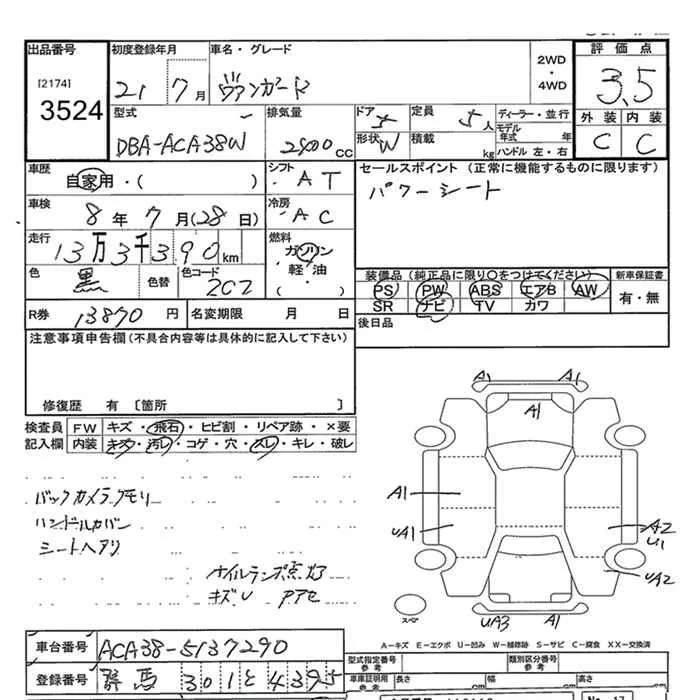 出品番号 初度登録年月 車名・グレード 2WD・4WD 評価点
[2174]
3524
21 7月 ヴァンガード 3.5
型式 排気量 ドア 定員 ディーラー・並行 外装 内装
DBA-ACA38W cc 5 5人 モデル年式 年 C C
形状 W 積載 kg ハンドル 左・右
車歴 シフト セールスポイント (正常に機能するものに限ります)
自家用・( ) AT パワーシート
車検 冷房
8年7月(28日) AC
走行 燃料
13万3千390km ガソリン
色 色替 色コード 軽・油
黒 202 ( )
装備品(純正品に限り○をつけてください) 新車保証書
PS PW ABS エアB AW 有・無
SR ナビ TV カワ
R券 13870円 名変期限 月 日 後日品
注意事項申告欄(不具合内容等は具体的に記入して下さい)
修復歴 有 [箇所 ]
検査員 FW キズ・飛石・ヒビ割・リペア跡・×要
記入欄 内装 キズ・汚レ・コゲ・穴・スレ・キレ・破レ
バックカメラクモリ
ハンドルカバー
シートヘタリ
オイルランプ点灯
キズU
A1 A1
A1
A1
UA1
A2
U1
UA2
スペア
UA3 A1
A-キズ E-エクボ U-凹み W-補修跡 S-サビ C-腐食 XX-交換済
車台番号 ACA38-5137290
登録番号 群馬 301 と 4395
型式指定番号 参考 類別区分番号 参考
車庫証明用 参考 長さ cm 幅 cm 高さ cm